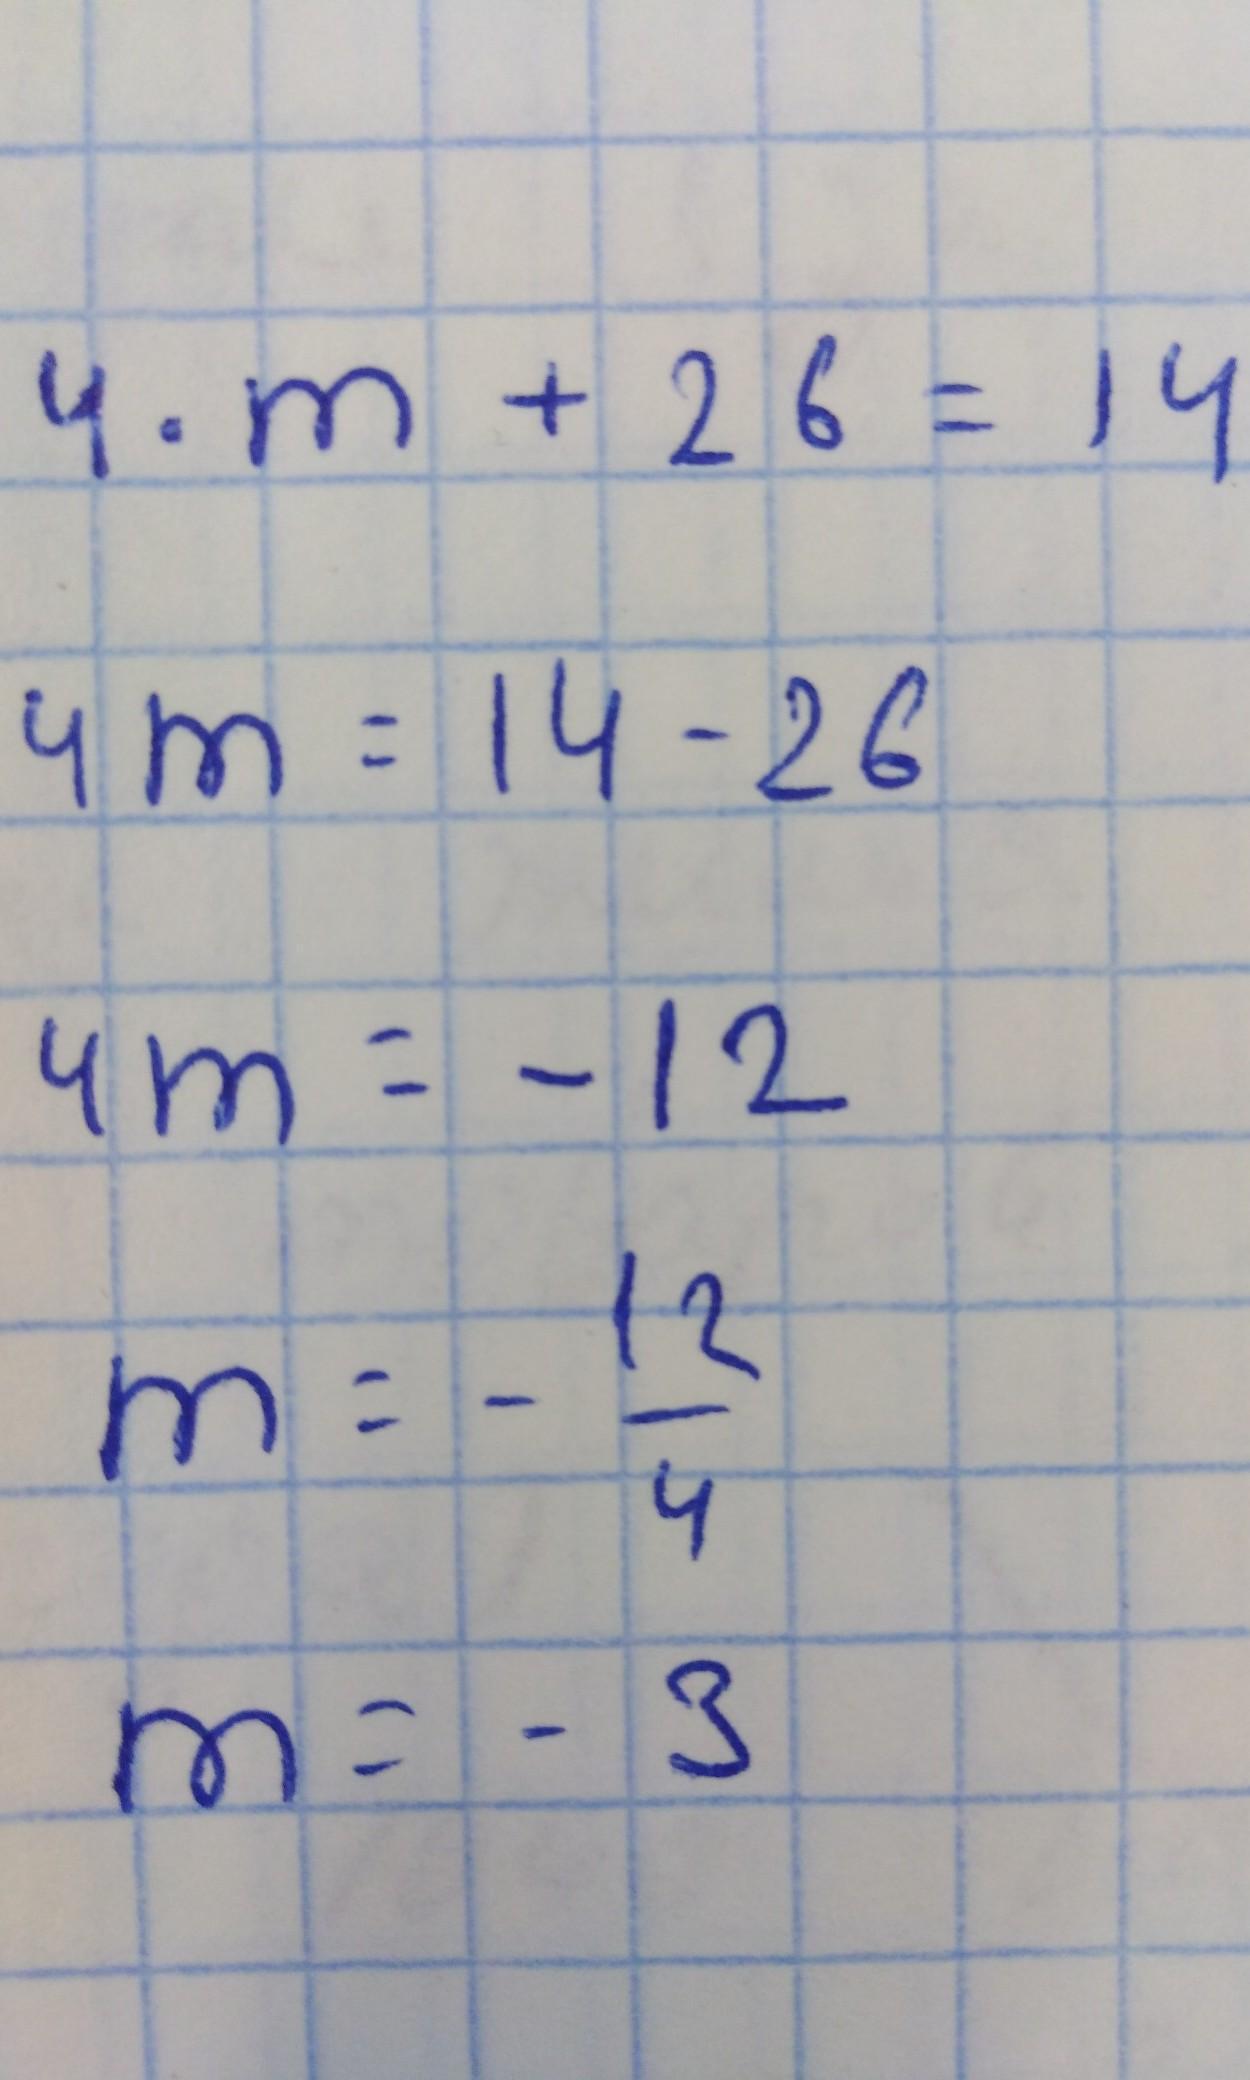 4 · m + 26 = 14
4m = 14 - 26
4m = - 12
m = - 12/4
m = - 3